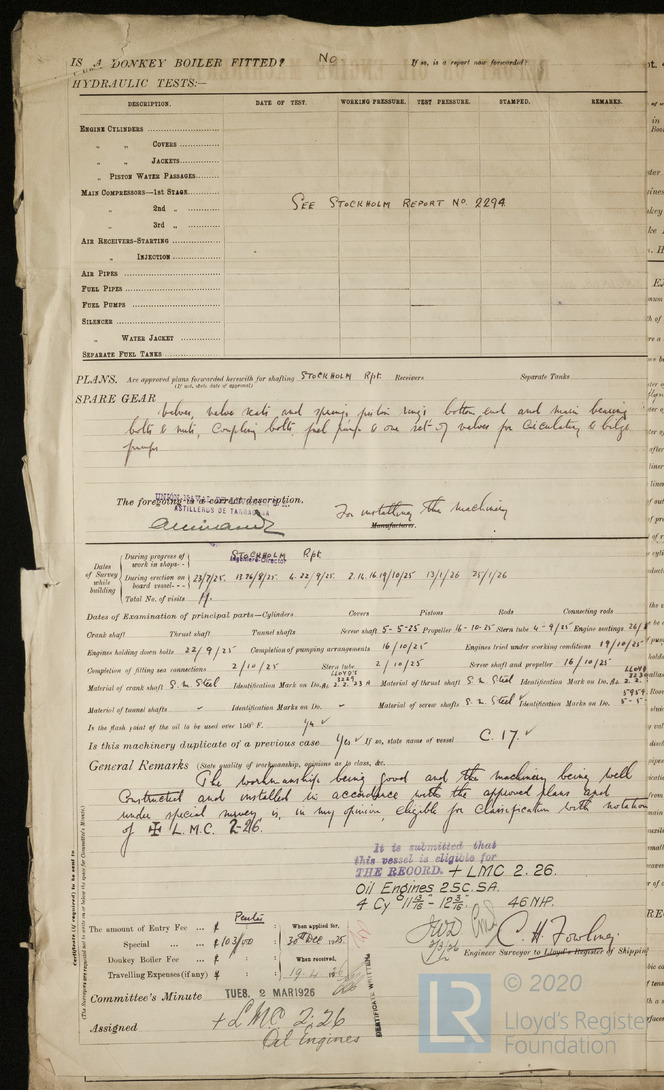 IS A DONKEY BOILER FITTED? No If so, is a report now forwarded?
HYDRAULIC TESTS:—
DESCRIPTION. DATE OF TEST. WORKING PRESSURE. TEST PRESSURE. STAMPED. REMARKS.
ENGINE CYLINDERS
„ „ COVERS
„ „ JACKETS
„ PISTON WATER PASSAGES
MAIN COMPRESSORS—1st STAGE
„ 2nd „ SEE STOCKHOLM REPORT No. 2294
„ 3rd „
AIR RECEIVERS-STARTING
„ INJECTION
AIR PIPES
FUEL PIPES
FUEL PUMPS
SILENCER
„ WATER JACKET
SEPARATE FUEL TANKS
PLANS. Are approved plans forwarded herewith for shafting STOCKHOLM Rpt. Receivers Separate Tanks
(If not, state date of approval)
SPARE GEAR
Valves, valve seats and springs, piston rings bottom end and main bearing
bolts & nuts, Coupling bolts, fuel pump & one set of valves for Circulating & bilge
pumps
The foregoing is a correct description.
ASTILLEROS DE TARRAGONA
For installing the machinery
Manufacturer.
Ingeniero-Director
Dates of Survey while building
During progress of work in shops - - STOCKHOLM Rpt
During erection on board vessel - - - 23/7/25. 13.26/8/25. 4.22/9/25. 2.14.16.19/10/25 13/1/26 25/1/26
Total No. of visits 11.
Dates of Examination of principal parts—Cylinders Covers Pistons Rods Connecting rods
Crank shaft Thrust shaft Tunnel shafts Screw shaft 5-5-25 Propeller 16-10-25 Stern tube 4-9/25 Engine seatings 26/8
Engines holding down bolts 22/9/25 Completion of pumping arrangements 16/10/25 Engines tried under working conditions 19/10/25
Completion of fitting sea connections 2/10/25 Stern tube 2/10/25 Screw shaft and propeller 16/10/25
Material of crank shaft S. M. Steel Identification Mark on Do. LLOYD'S Material of thrust shaft S. M. Steel Identification Mark on Do. LLOYD
Material of tunnel shafts - Identification Marks on Do. - Material of screw shafts S. M. Steel Identification Marks on Do. 5-5-
Is the flash point of the oil to be used over 150° F. Yes
Is this machinery duplicate of a previous case Yes If so, state name of vessel C. 17.
General Remarks (State quality of workmanship, opinions as to class, &c.
The workmanship being good and the machinery being well
Constructed and installed in accordance with the approved plans and
under special survey is, in my opinion, eligible for Classification with notation
of ✠ L.M.C. 2-26.
It is submitted that
this vessel is eligible for
THE RECORD. + LMC 2.26.
Oil Engines 2SC.SA.
4 Cy 11 13/16" - 12 3/16". 46 NHP.
The amount of Entry Fee ... £ : : When applied for,
Special ... ... £ 103/00 : 30th Dec 1925
Donkey Boiler Fee ... £ : : When received,
Travelling Expenses (if any) £ : : 19.4.26
C. H. Fowling
Engineer Surveyor to Lloyd's Register of Shipping
Committee's Minute TUES. 2 MAR 1926
Assigned + LMC 2.26
Oil Engines
CERTIFICATE WRITTEN
Certificate (if required) to be sent to
(The Surveyors are requested not to write on or below the space for Committee's Minute.)
LR
© 2020
Lloyd's Register
Foundation